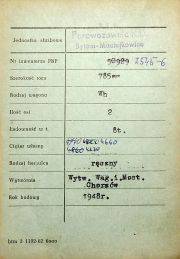 Jednostka służbowa Parowozownia
Bytom-Maciejkowice
Nr inwentarza PKP 2545-6
Szerokość toru 785mm
Rodzaj wagonu Wh
Ilość osi 2
Ładowność w t. 8t.
Ciężar własny
Rodzaj hamulca ręczny
Wytwórnia Wytw. Wag. i Most.
Chorzów
Rok budowy 1948r.